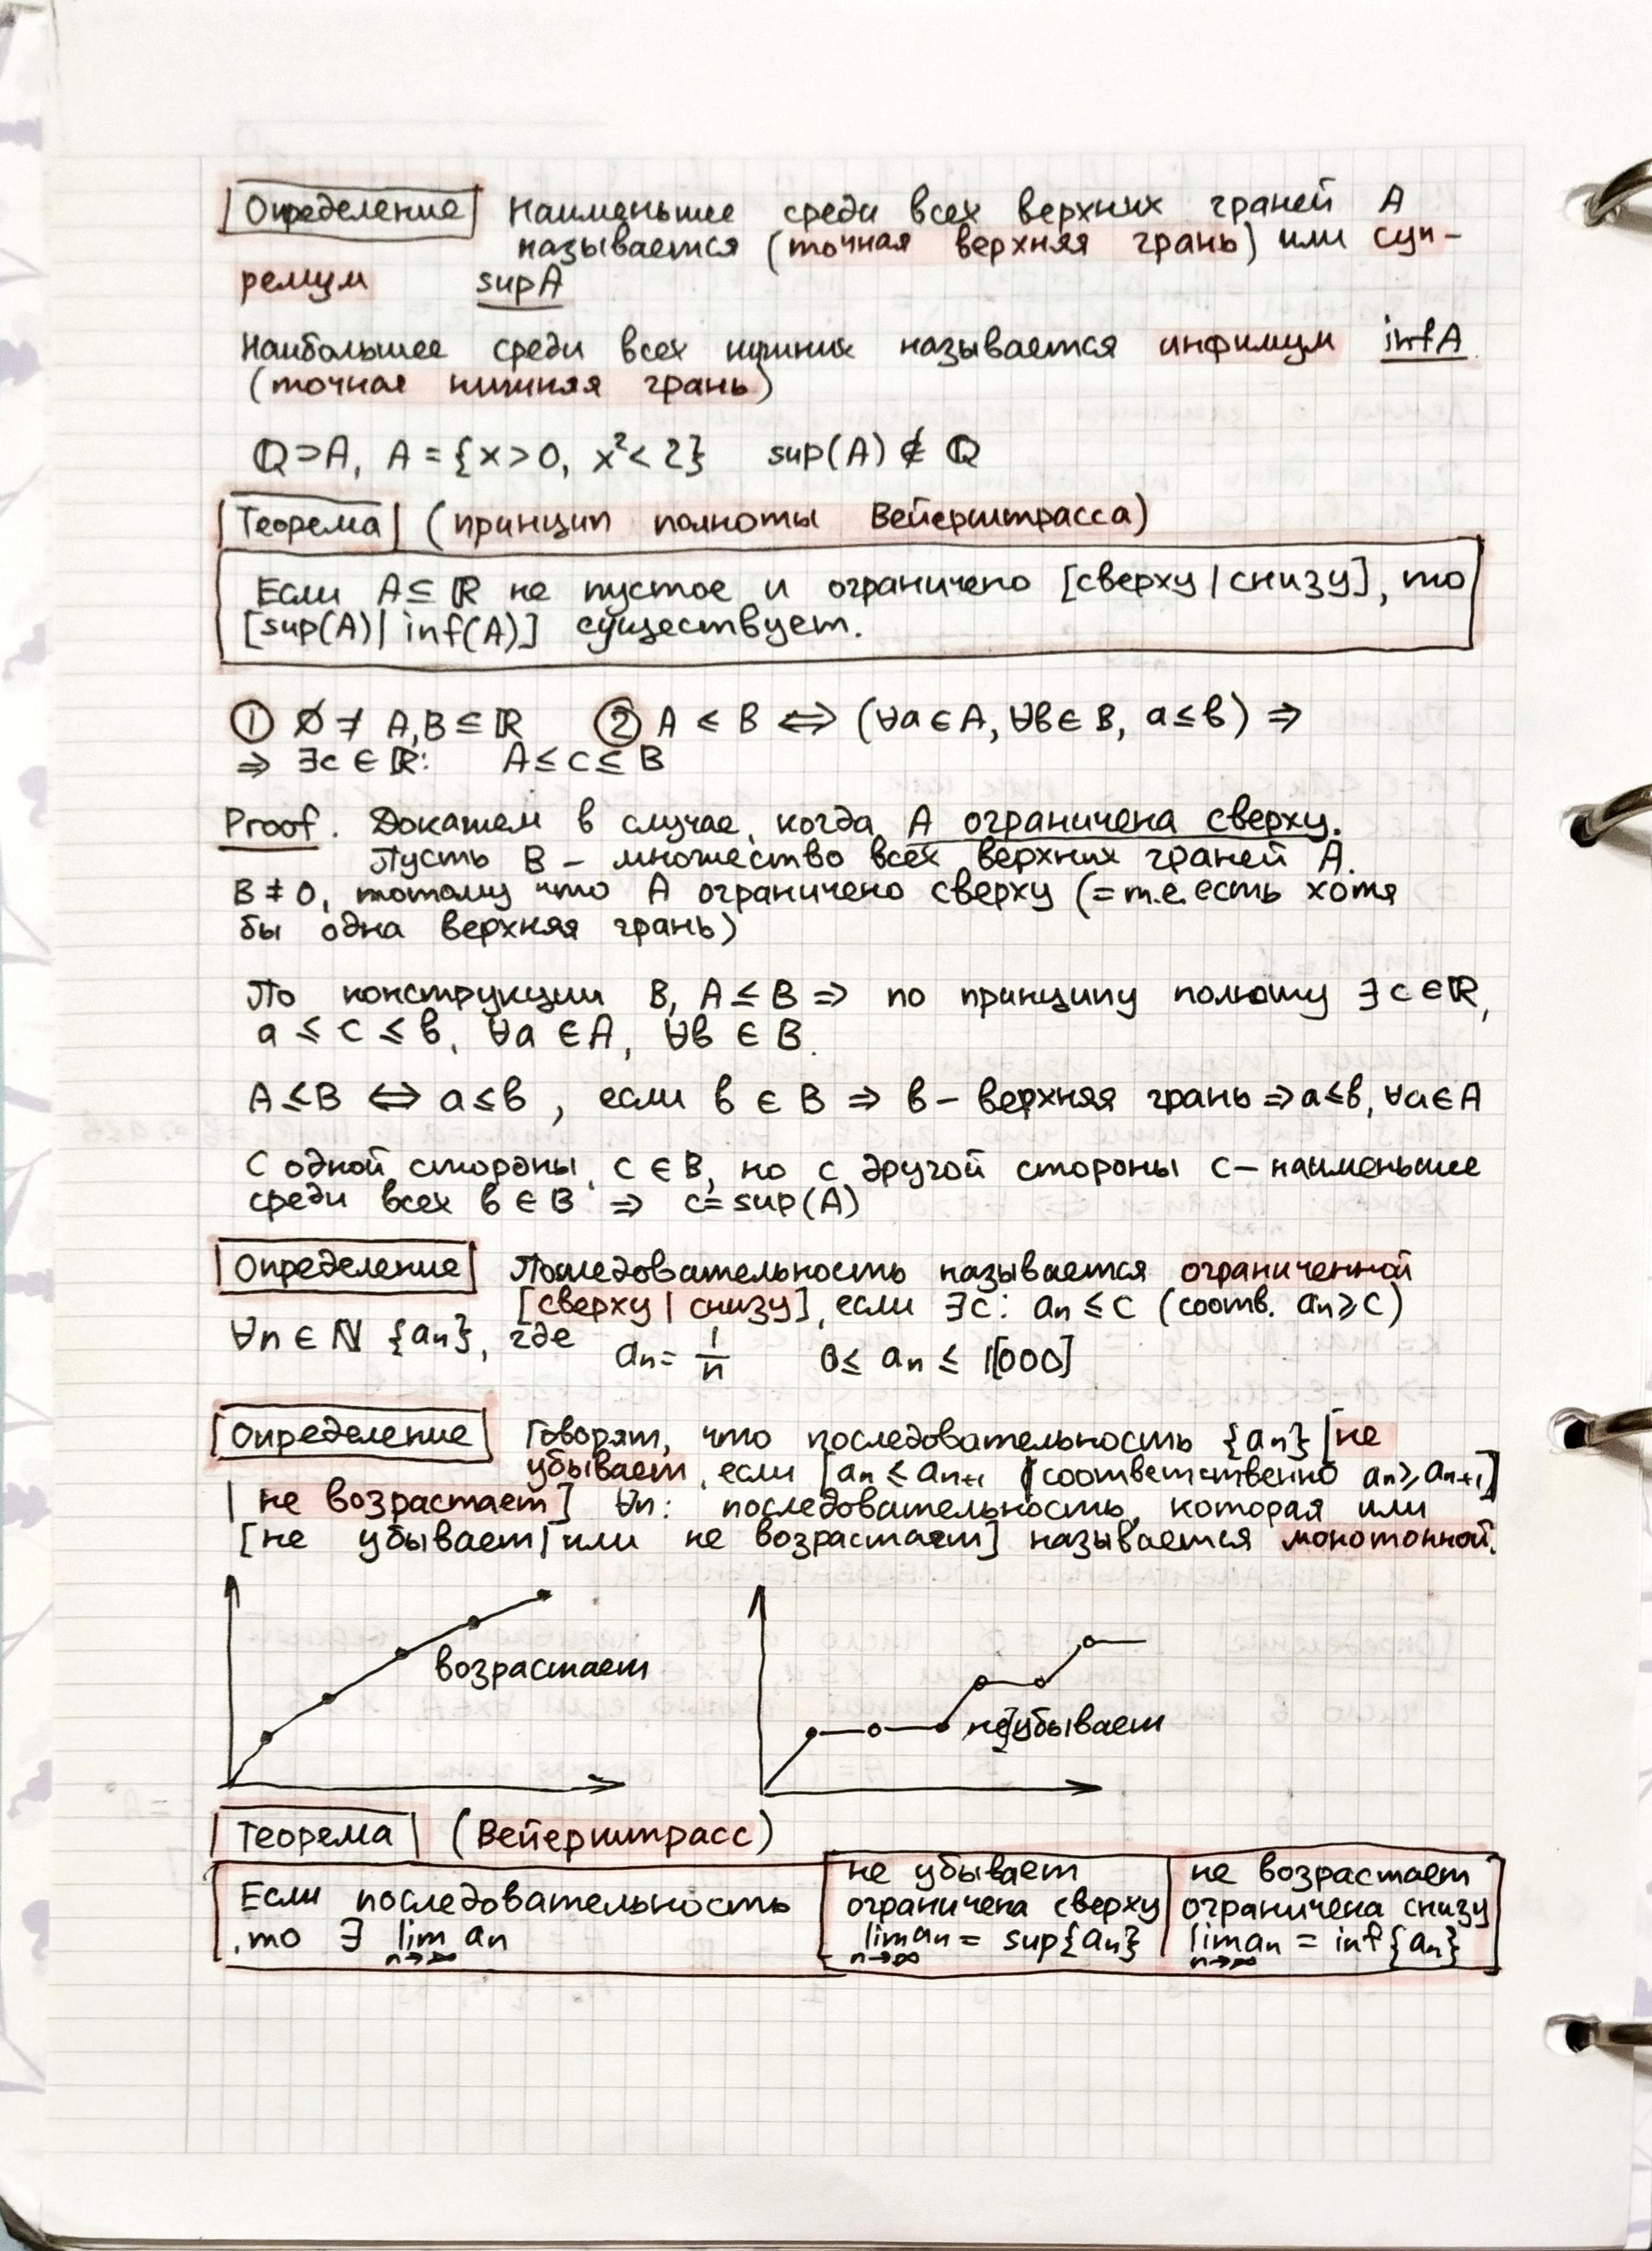 Определение Наименьшее среди всех верхних граней A
называется (точная верхняя грань) или суп-
ремум supA
Наибольшее среди всех нижних называется инфимум infA
(точная нижняя грань)
ℚ⊃A, A = {x>0, x²<2} sup(A) ∉ ℚ
Теорема (принцип полноты Вейерштрасса)
Если A⊆ℝ не пустое и ограничено [сверху | снизу], то
[sup(A) | inf(A)] существует.
① ∅ ≠ A,B ⊆ ℝ ② A ≤ B ⇔ (∀a∈A, ∀b∈B, a≤b) ⇒
⇒ ∃c∈ℝ: A≤c≤B
Proof. Докажем в случае, когда A ограничена сверху.
Пусть B – множество всех верхних граней A.
B≠0, потому что A ограничено сверху (= т.е. есть хотя
бы одна верхняя грань)
По конструкции B, A≤B ⇒ по принципу полноту ∃c∈ℝ,
a ≤ c ≤ b, ∀a∈A, ∀b∈B.
A≤B ⇔ a≤b, если b∈B ⇒ b – верхняя грань ⇒ a≤b, ∀a∈A
С одной стороны, c∈B, но с другой стороны c – наименьшее
среди всех b∈B ⇒ c=sup(A)
Определение Последовательность называется ограниченной
[сверху | снизу], если ∃c: aₙ ≤ c (соотв. aₙ ≥ c)
∀n∈ℕ {aₙ}, где aₙ = 1/n 0 ≤ aₙ ≤ 1[000]
Определение Говорят, что последовательность {aₙ} [не
убывает, если [aₙ ≤ aₙ₊₁ (соответственно aₙ ≥ aₙ₊₁]
| не возрастает] ∀n: последовательность, которая или
[не убывает | или не возрастает] называется монотонной.
возрастает
не убывает
Теорема (Вейерштрасс)
Если последовательность
, то ∃ lim aₙ
n→∞
не убывает
ограничена сверху
lim aₙ = sup{aₙ}
n→∞
не возрастает
ограничена снизу
lim aₙ = inf{aₙ}
n→∞